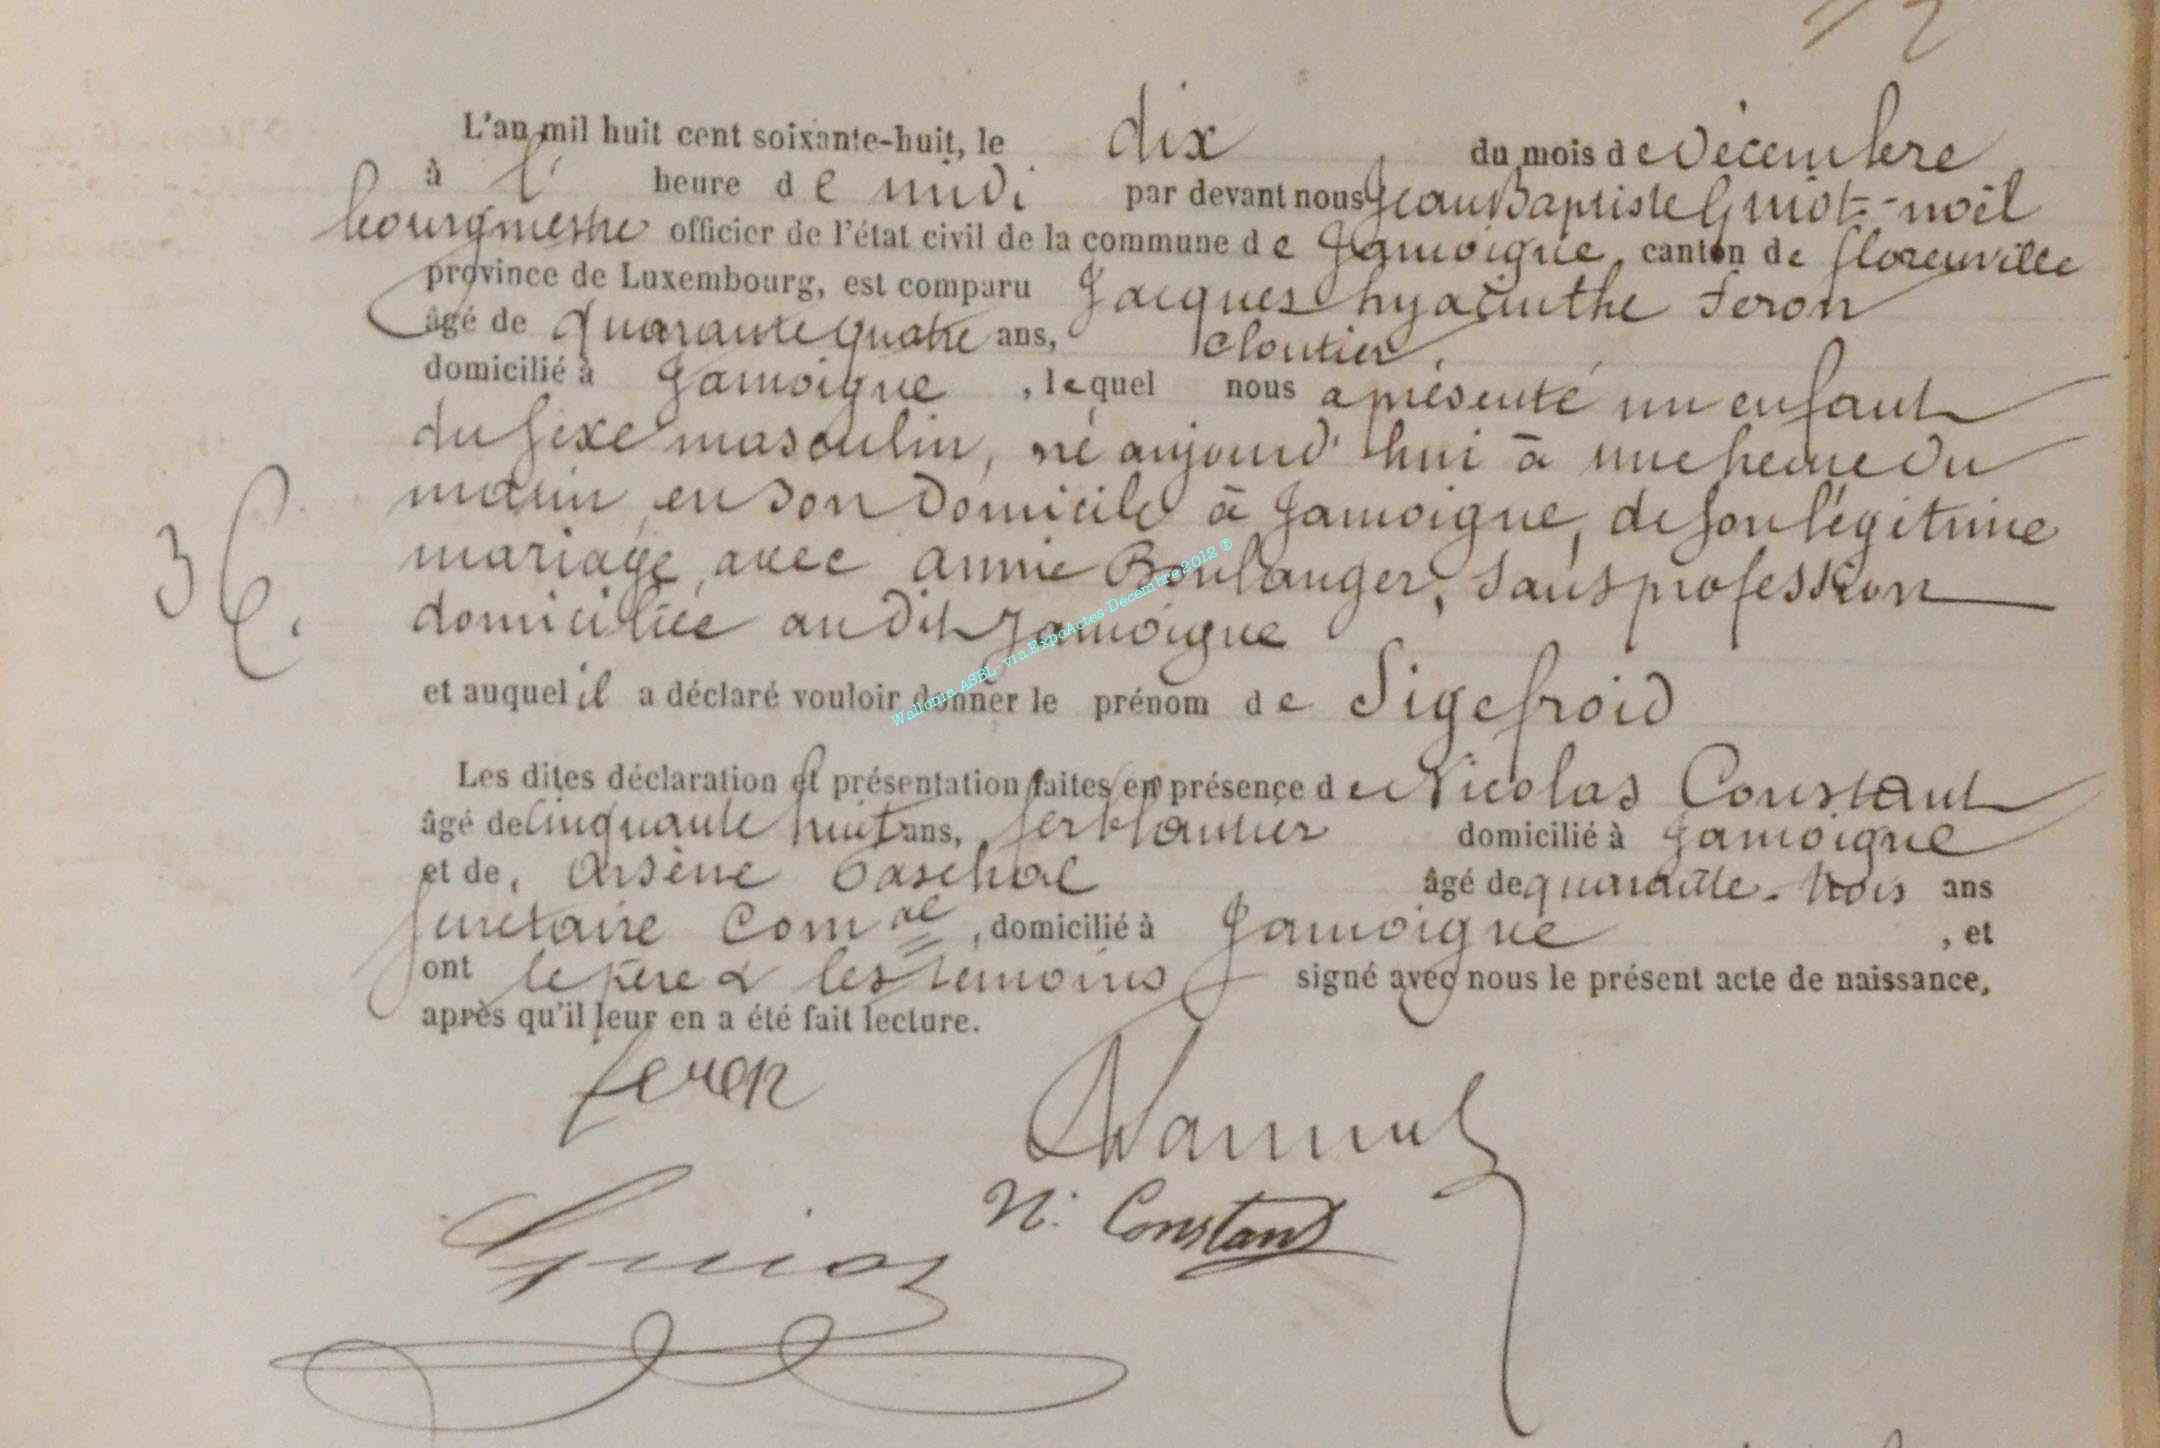 L'an mil huit cent soixante-huit, le dix du mois de Décembre
à l' heure de midi par devant nous Jean Baptiste Guiot-noël
bourgmestre officier de l'état civil de la commune de Jamoigne, canton de florenville
province de Luxembourg, est comparu Jacques hyacinthe Feron
âgé de quarante quatre ans, cloutier,
domicilié à Jamoigne, lequel nous a présenté un enfant
du sexe masculin, né aujourd'hui à une heure du
matin, en son domicile à Jamoigne, de son légitime
mariage, avec annne Boulanger, sans profession
domiciliée au dit Jamoigne
36.
et auquel il a déclaré vouloir donner le prénom de Sigefroid
Wallonie ASBL - via ExpoActes Décembre 2012 ®
Les dites déclaration et présentation faites en présence de Nicolas Constant
âgé de Cinquante huit ans, ferblantier domicilié à Jamoigne
et de, Arsène Paschal âgé de quarante-trois ans
secretaire Com al, domicilié à Jamoigne, et
ont le père & les témoins signé avec nous le présent acte de naissance,
après qu'il leur en a été fait lecture.
feron
N. Constant
Guiot